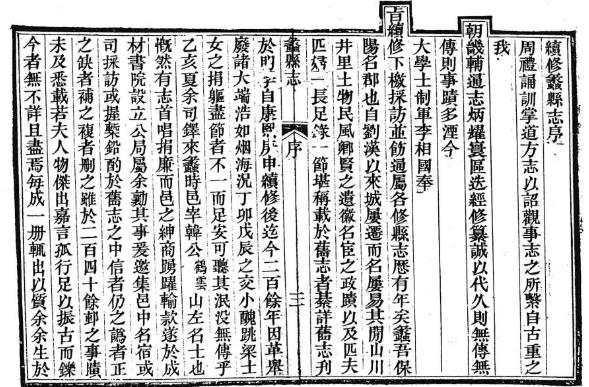 續修蠡縣志序
周禮誦訓掌道方志以詔觀事志之所繫自古重之
我
朝畿輔通志炳耀寰區迭經修纂誠以代久則無傳無
傳則事蹟多湮今
大學士制軍李相國奉
旨續修下檄採訪並飭通屬各修縣志歷有年矣蠡吾保
陽名郡也自劉漢以來城屢遷而名屢易其閒山川
井里土物民風鄉賢之遺徽名宦之政蹟以及匹夫
匹婦一長足錄一節堪稱載於舊志者綦詳舊志刋
蠡縣志 序 三
於明季自康熙庚申續修後迄今二百餘年因革舉
廢諸大端浩如烟海況丁卯戊辰之交小醜跳梁士
女之捐軀盡節者不一而足安可聽其泯没無傳乎
乙亥夏余司鐸來蠡時邑宰韓公鶴雲山左名士也
慨然有志首唱捐廉而邑之紳商踴躍輸款遂於成
材書院設立公局屬余勷其事爰邀集邑中名宿或
司採訪或握槧鉛酌於舊志之中信者仍之譌者正
之缺者補之複者刪之雖於二百四十餘郵之事蹟
未及悉載若夫人物傑出嘉言孤行足以振古而鑠
今者無不詳且盡焉每成一册輒出以質余余生於